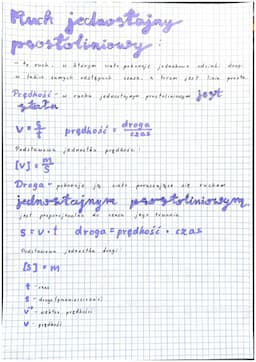 Ruch jednostajny
prostoliniowy:
- to ruch, w którym ciało pokonuje jednakowe odcinki drogi
w takich samych odstępach czasu, a torem jest linia prosta.
Prędkość - w ruchu jednostajnym prostoliniowym jest
stała
v = s/t prędkość = droga/czas
Podstawowa jednostka prędkości:
[v] = m/s
Droga - pokonuje ją ciało poruszające się ruchem
jednostajnym prostoliniowym,
jest proporcjonalna do czasu jego trwania.
s = v · t droga = prędkość · czas
Podstawowa jednostka drogi:
[s] = m
t - czas
s - droga
v - wektor prędkości
v - prędkość